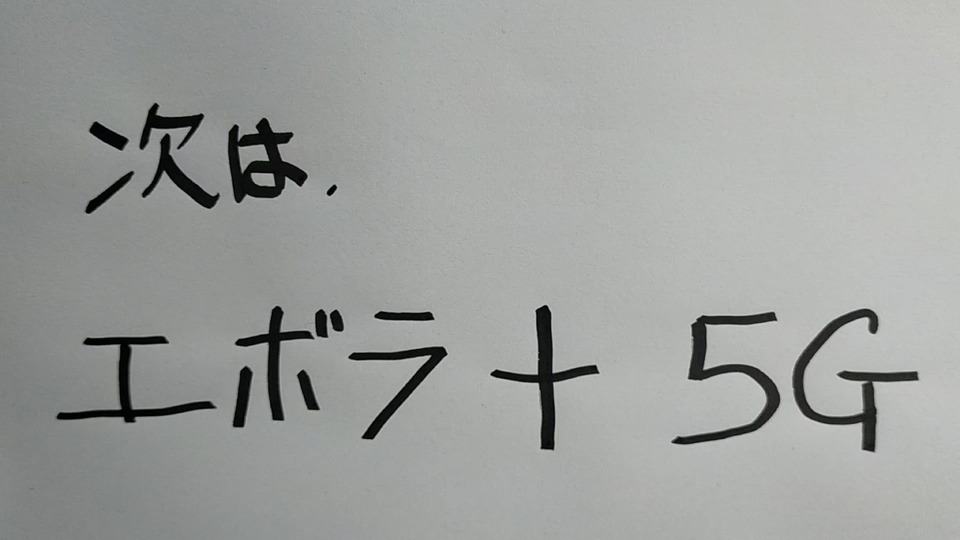 次は.
エボラ+5G